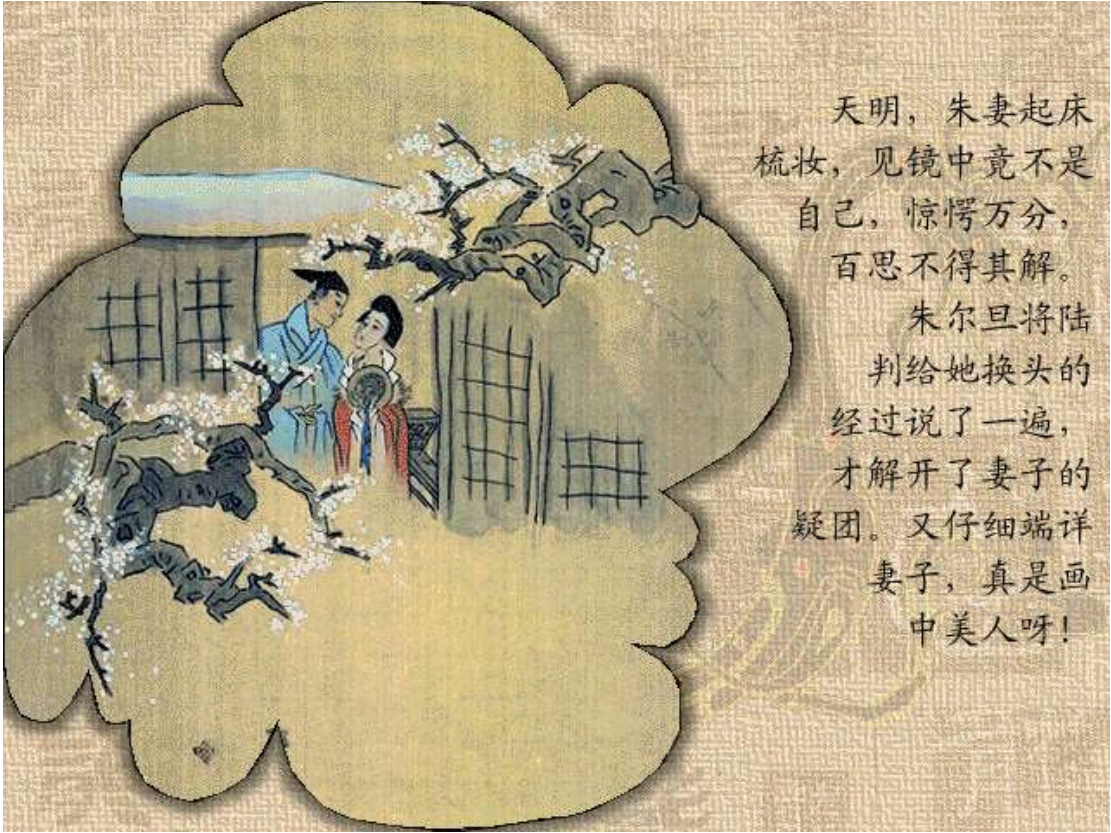 天明，朱妻起床
梳妆，见镜中竟不是
自己，惊愕万分，
百思不得其解。
朱尔旦将陆
判给她换头的
经过说了一遍，
才解开了妻子的
疑团。又仔细端详
妻子，真是画
中美人呀！